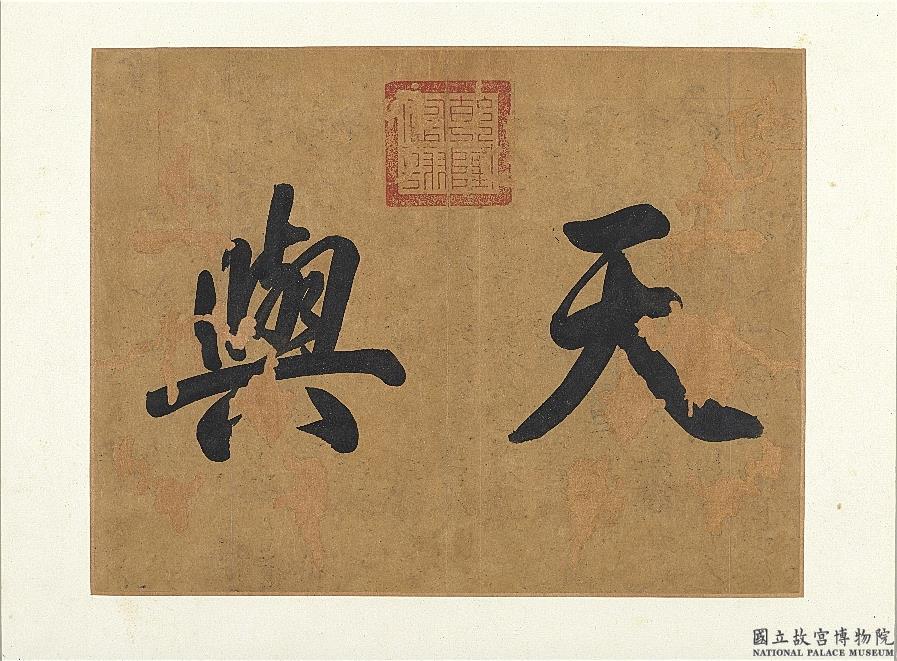 天與
國立故宮博物院
NATIONAL PALACE MUSEUM